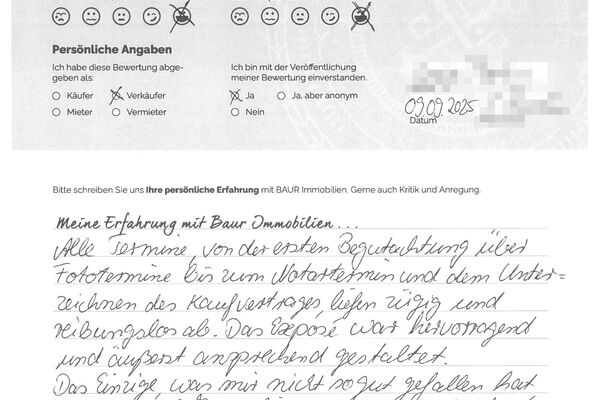 Persönliche Angaben
Ich habe diese Bewertung abge-
geben als:
Käufer
Verkäufer
Mieter
Vermieter
Ich bin mit der Veröffentlichung
meiner Bewertung einverstanden.
Ja
Ja, aber anonym
Nein
09.09.2025
Datum
Bitte schreiben Sie uns Ihre persönliche Erfahrung mit BAUR Immobilien. Gerne auch Kritik und Anregung.
Meine Erfahrung mit Baur Immobilien...
Alle Termine, von der ersten Begutachtung über
Fototermine bis zum Notartermin und dem Unter=
zeichnen des Kaufvertrages, liefen zügig und
reibungslos ab. Das Exposé war hervorragend
und äußerst ansprechend gestaltet.
Das Einzige, was mir nicht so gut gefallen hat